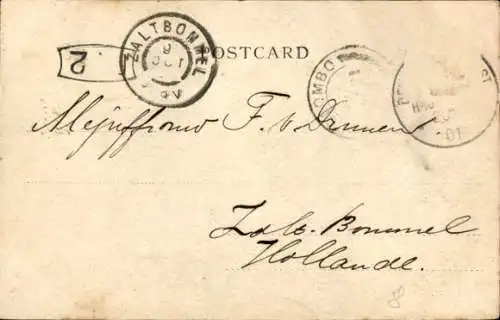 POSTCARD
ZALTBOMMEL
9
OCT
2
OMBO
01
Mejuffrouw F. v. Drunen
Zalt-Bommel
Hollande.